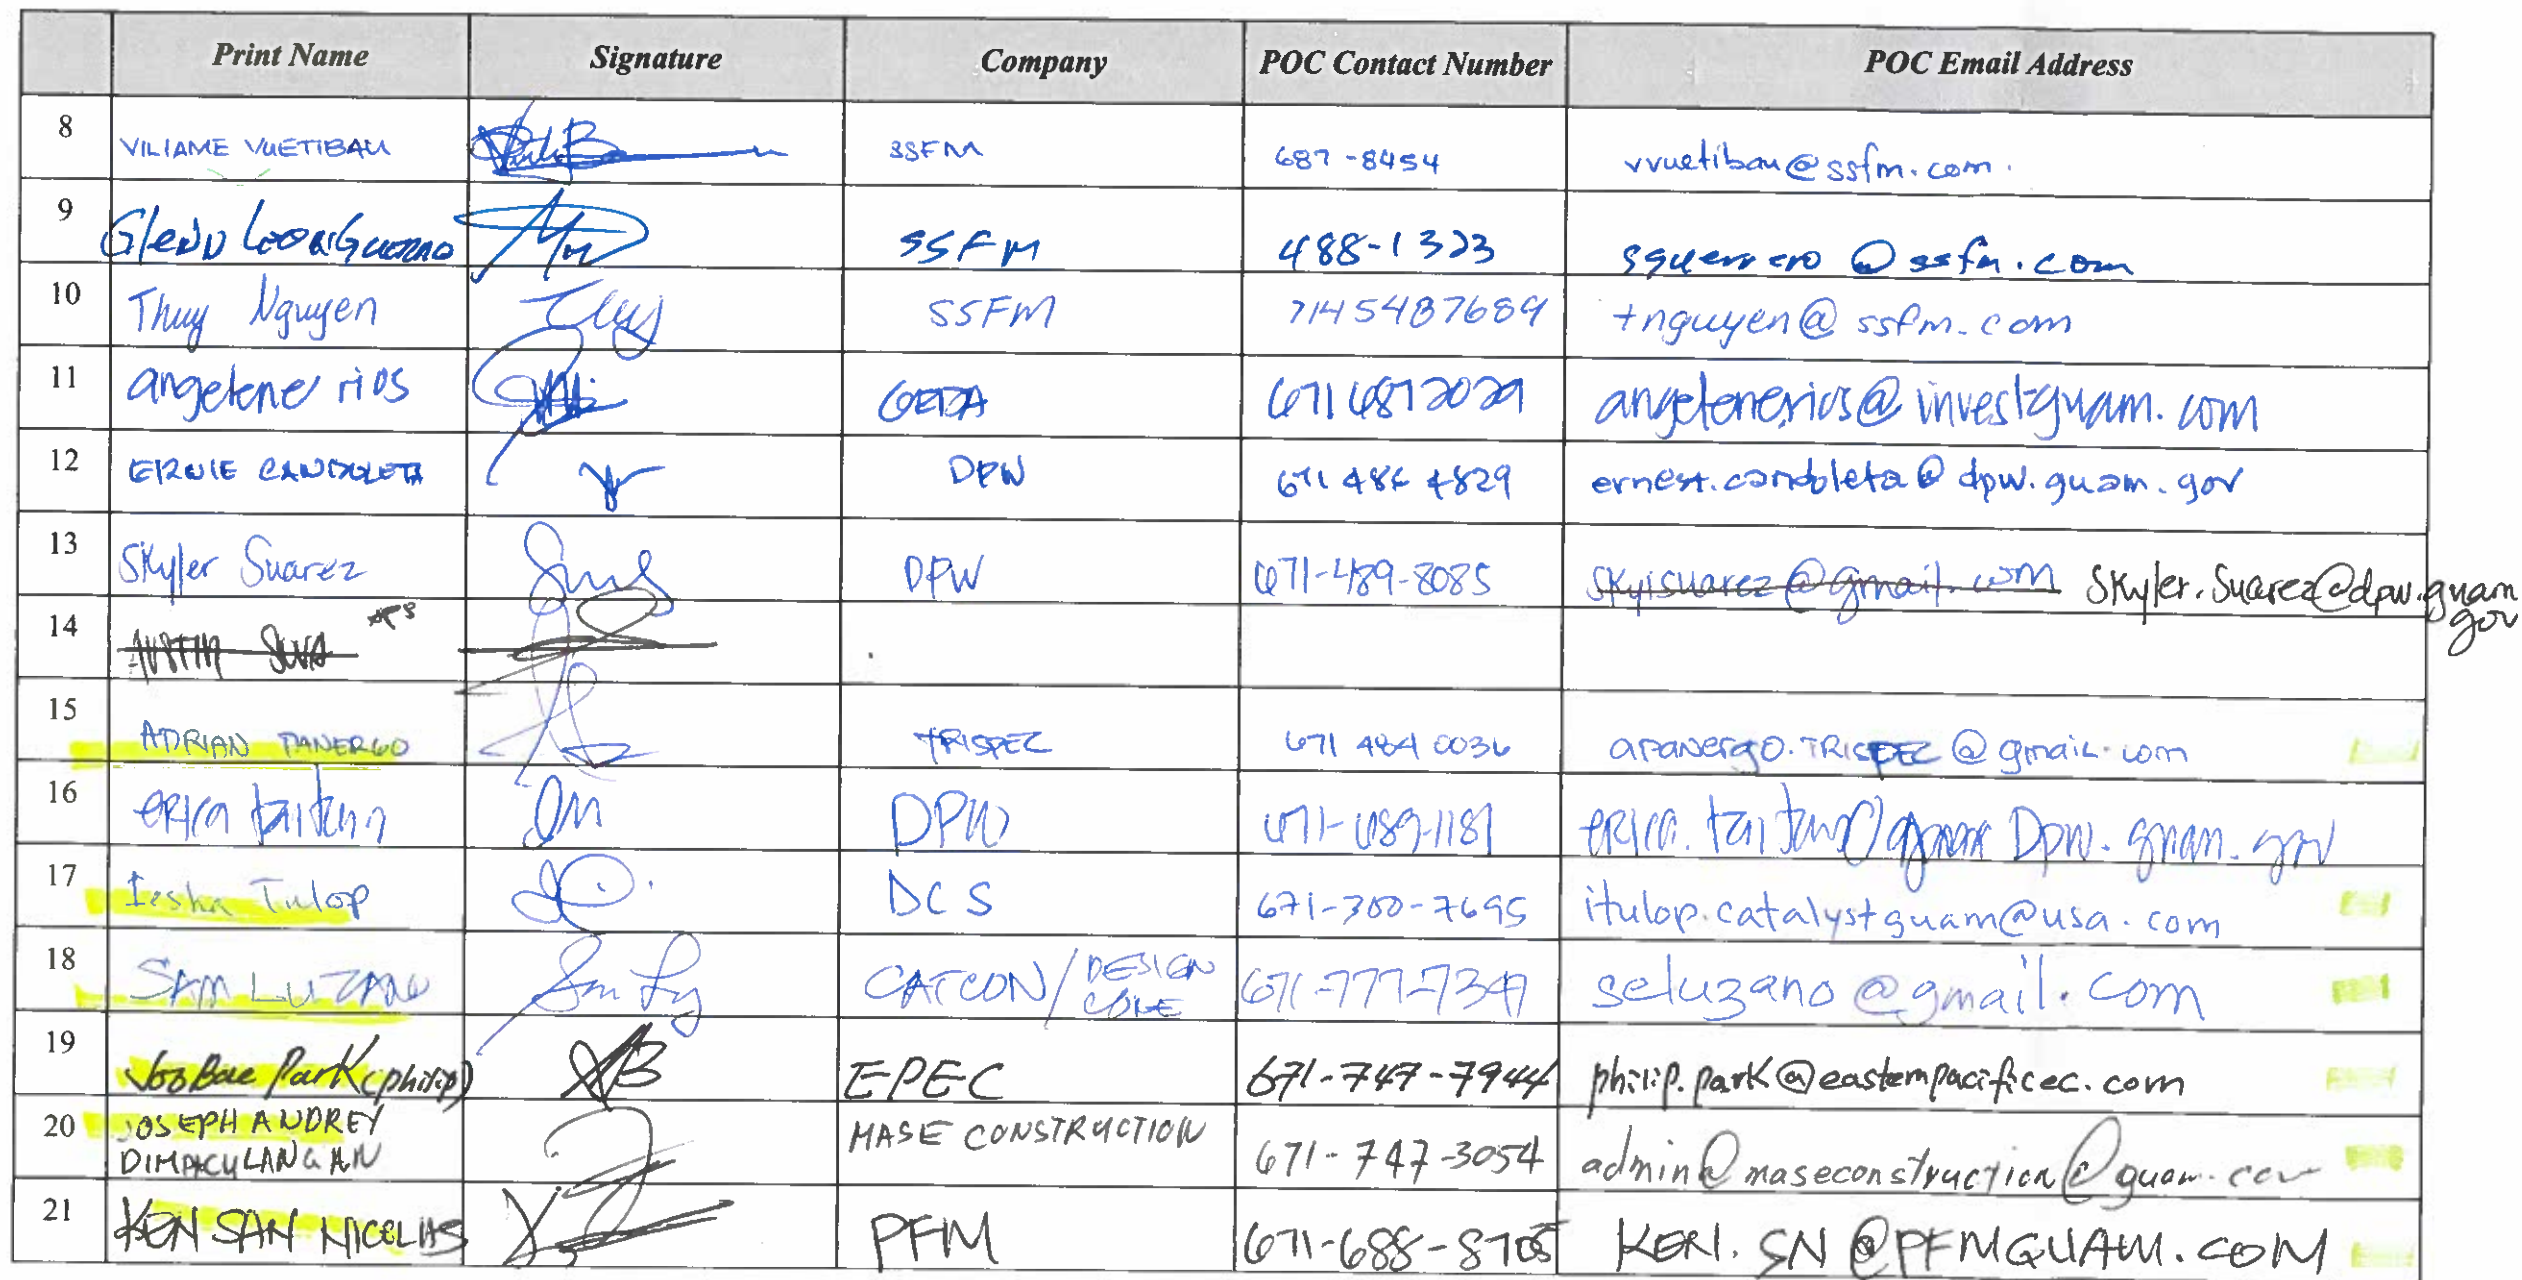 Print Name Signature Company POC Contact Number POC Email Address
8 VILIAME VUETIBAU SSFM 687-8454 vvuetibau@ssfm.com.
9 Glenn Leon Guerrero SSFM 488-1323 sguerrero@ssfm.com
10 Thuy Nguyen SSFM 7145487689 tnguyen@ssfm.com
11 angelene rios GEDA 671 687 2029 angelene.rios@investguam.com
12 ERNIE CANDOLETA DPW 671 486 4829 ernest.candoleta@dpw.guam.gov
13 Skyler Suarez DPW 671-489-8085 skyisuarez@gmail.com Skyler.Suarez@dpw.guam
gov
14 AUSTIN SILVA
15 ADRIAN PANERGO TRISPEC 671 484 0036 apanergo.TRISPEC@gmail.com
16 erica taitano DPW 671-689-1181 erica.taitano@ Dpw.guam.gov
17 Ieska Tulop DCS 671-300-7695 itulop.catalystguam@usa.com
18 SAM LUZANO CATCON/DESIGN 671-777-7347 seluzano@gmail.com
19 JooBae Park (philip) EPEC 671-747-7944 philip.park@easternpacificec.com
20 JOSEPH ANDREY MASE CONSTRUCTION
DIMACULANGAN 671-747-3054 admin@maseconstruction@guam.com
21 KEN SAN NICOLAS PFM 671-688-8705 KERI.SN@PFMGUAM.COM